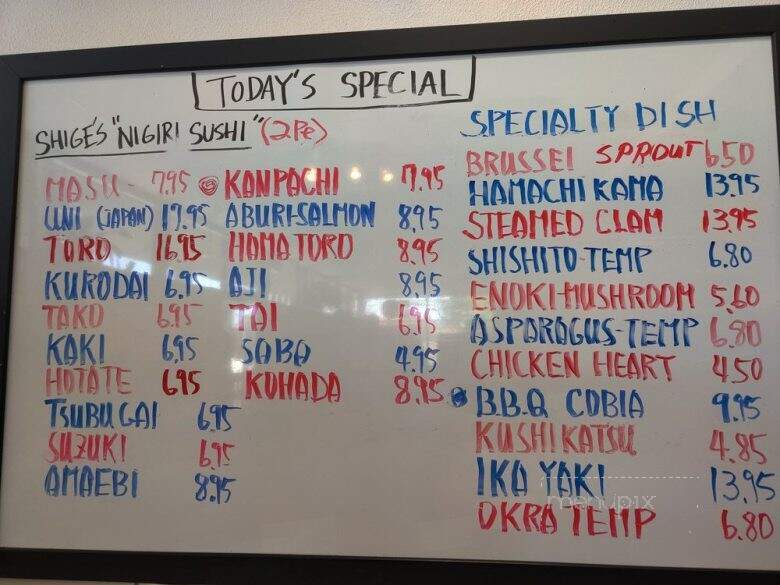 TODAY'S SPECIAL
SHIGE'S "NIGIRI SUSHI" (2Pe)
MASU - 7.95
UNI (JAPAN) 17.95
TORO 16.95
KURODAI 6.95
TAKO 6.95
KAKI 6.95
HOTATE 6.95
TSUBUGAI 6.95
SUZUKI 6.95
AMAEBI 8.95
KANPACHI 7.95
ABURI-SALMON 8.95
HAMATORO 8.95
AJI 8.95
TAI 6.95
SABA 4.95
KOHADA 8.95
SPECIALTY DISH
BRUSSEl SPROUT 6.50
HAMACHI KAMA 13.95
STEAMED CLAM 13.95
SHISHITO-TEMP 6.80
ENOKI-MUSHROOM 5.60
ASPARAGUS-TEMP 6.80
CHICKEN HEART 4.50
B.B.Q COBIA 9.95
KUSHIKATSU 4.85
IKA YAKI 13.95
OKRA TEMP 6.80
menupix